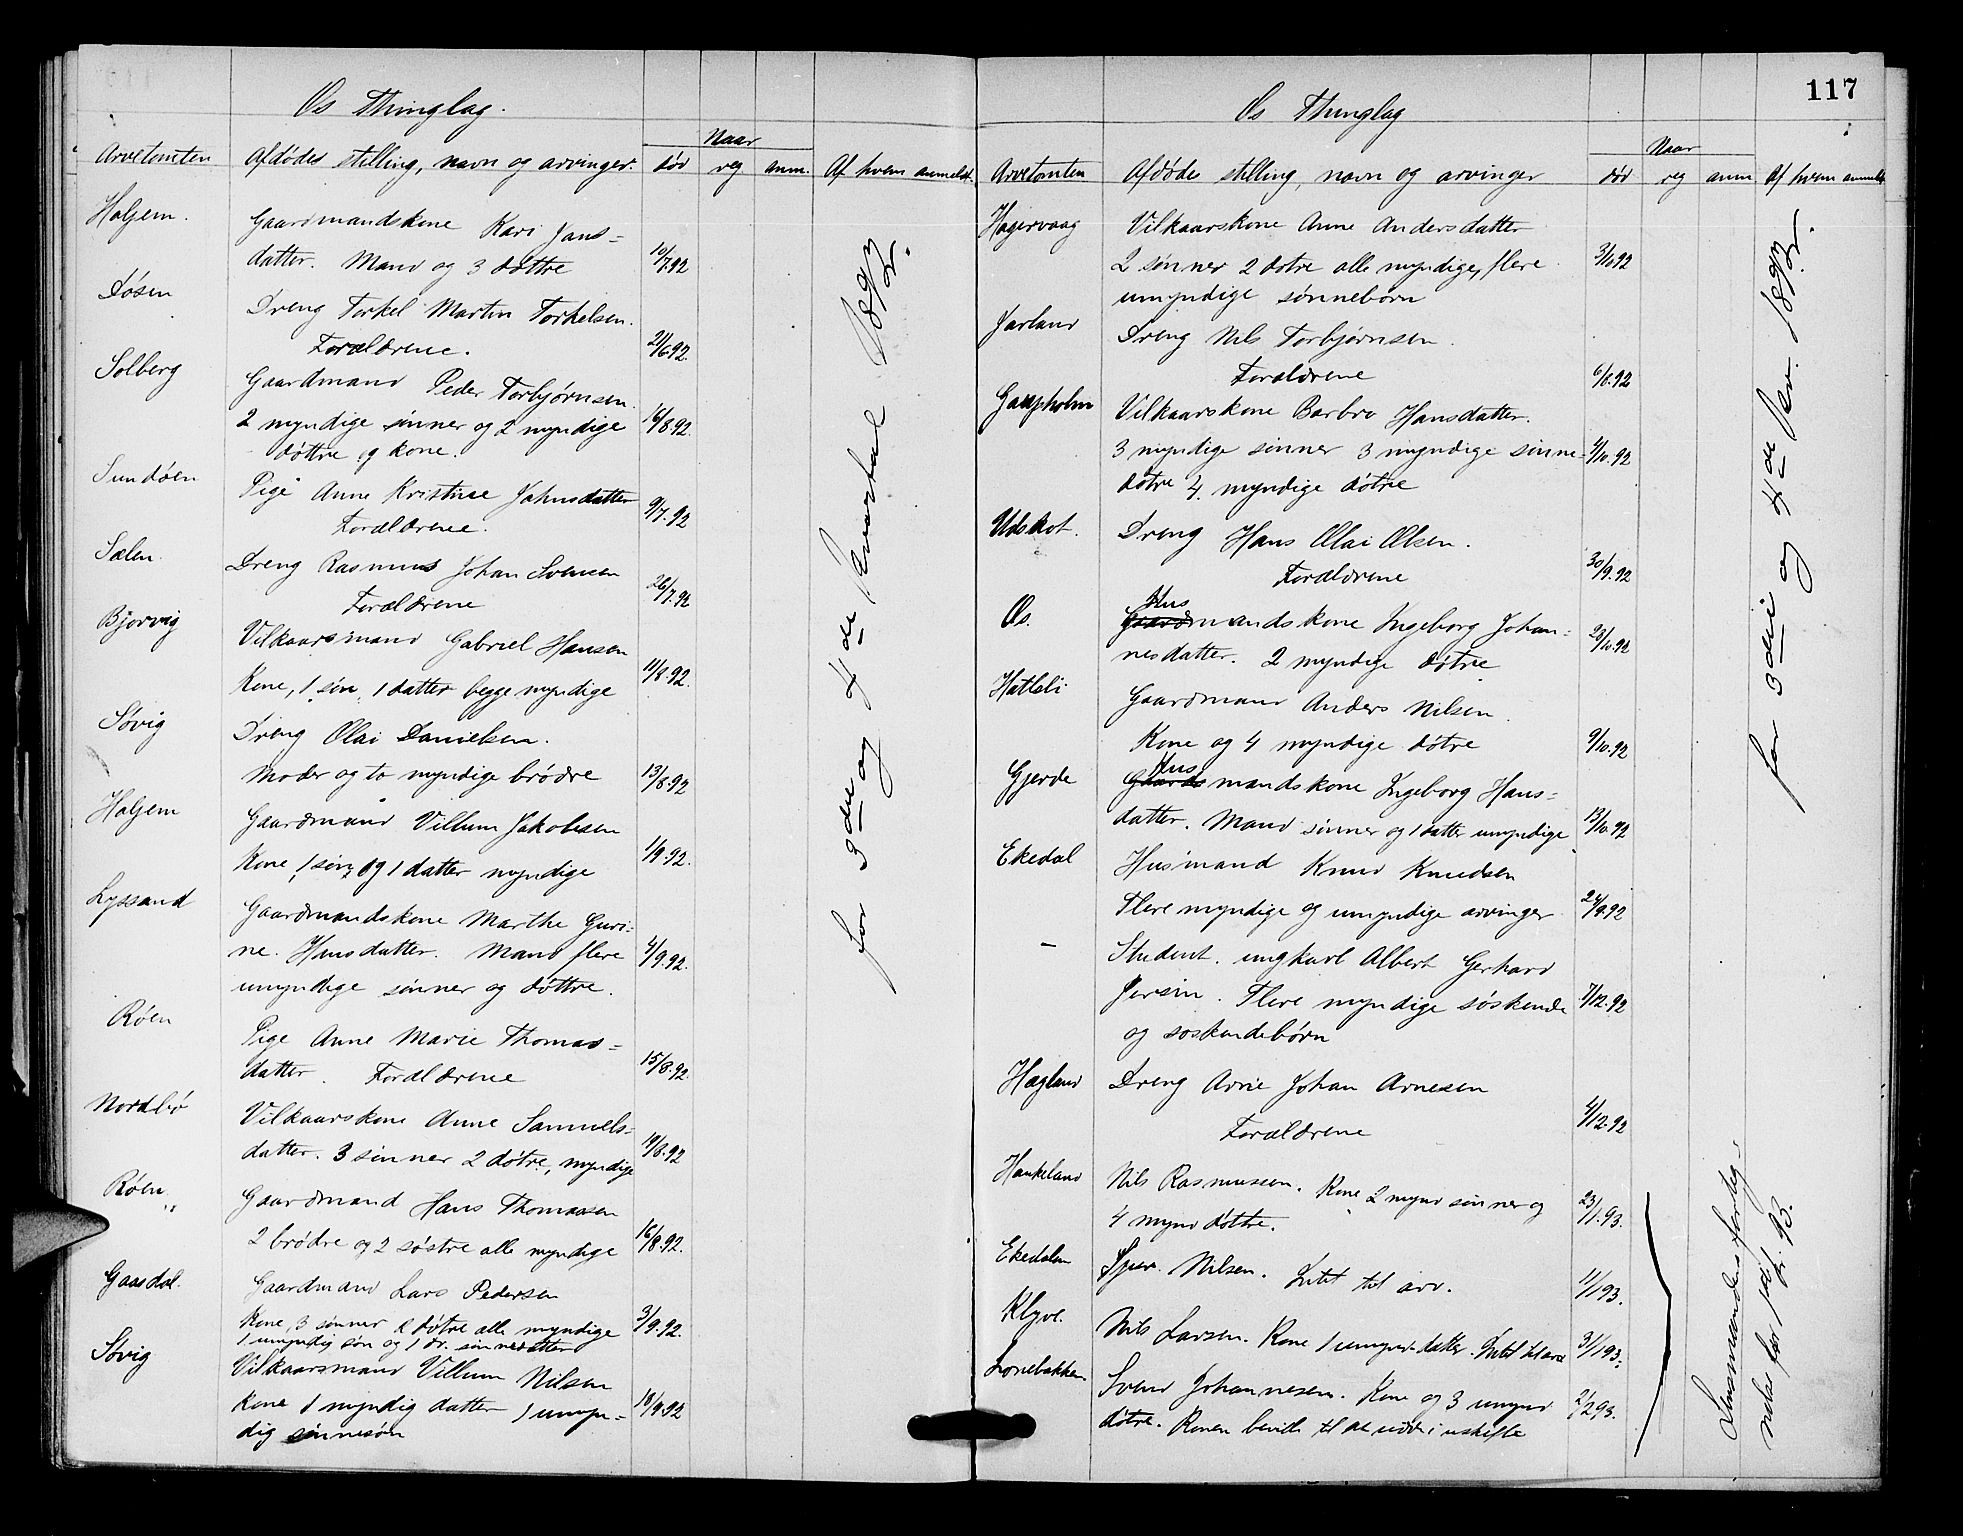 Os Thinglag.
Naar
Arvetomten Afdødes stilling, navn og arvinger. død reg anm. Af hvem anmeldt.
Haljem. Gaardmandskone Kari Jans=
datter. Mand og 3 døttre 10/7.92
Døsen Dreng Torkel Martin Torkelsen.
Forældrene. 21/6.92.
Solberg Gaardmand Peder Torbjørnsen.
2 myndige sønner og 2 myndige 16/8.92.
døttre og kone.
Sundøen Pige Anne Kristine Jahnsdatter
Forældrene. 9/7.92
Sælen. Dreng Rasmus Johan Svensen
Forældrene 26/7.92
Bjørvig Vilkaarsmand Gabriel Hansen
Kone, 1 søn, 1 datter begge myndige 11/8.92.
Søvig Dreng Olai Danielsen.
Moder og to myndige brødre 13/8.92
Haljem Gaardmand Villum Jakobsen
Kone, 1 søn og 1 datter myndige 1/9.92.
Lyssand Gaardmandskone Marthe Guri=
ne. Hansdatter. Mand flere 4/9.92.
umyndige sønner og døttre.
Røen Pige Anne Marie Thomas=
datter. Forældrene 15/8.92.
Nordbø Vilkaarskone Anne Samuels=
datter. 3 sønner 2 døtre, myndige 19/8.92
Røen. Gaardmand Hans Thomassen
2 brødre og 2 søstre alle myndige 16/8.92.
Gaasdal. Gaardmand Lars Pedersen
Kone, 3 sønner 2 døtre alle myndige 3/9.92.
1 umyndig søn og 1 do. sønnedatter
Søvig Vilkaarsmand Villum Nilsen
Kone 1 myndig datter 1 umyn= 18/9.92
dig sønnesøn
for 3die og 4de Kvartal 1892.
117
Os Thinglag
Naar
Arvetomten Afdødes stilling, navn og arvinger død reg anm Af hvem anmeldt
Hagervaag Vilkaarskone Anne Andersdatter
2 sønner 2 døtre alle myndige, flere 3/10.92
umyndige sønnebørn
Jarland Dreng Nils Torbjørnsen.
Forældrene 6/8.92
Gaupholm Vilkaarskone Barbro Hansdatter.
3 myndige sønner 3 myndige sønne= 4/10.92
døtre 4 myndige døtre
Udskot. Dreng Hans Olai Olsen.
Forældrene 30/9.92
Os. Hus
Gaardmandskone Ingeborg Johan= 28/10.92
nesdatter. 2 myndige døtre
Hatleli Gaardmand Anders Nilsen.
Kone og 4 myndige døtre 9/10.92
Gjerde Hus
Gaardsmandskone Ingeborg Hans=
datter. Mand sønner og 1 datter umyndige 13/10.92
Ekedal Husmand Knud Knudsen
Flere myndige og umyndige arvinger 24/9.92
- Student. ungkarl Albert Gerhard
Jersin. Flere myndige søskende 7/12.92
og søskendebørn
Hægland Dreng Arne Johan Arnesen
Forældrene 4/12.92
Haukeland Nils Rasmussen. Kone 2 mynd sønner og 23/1.93.
4 mynd døttre.
Ekedalen Sjur. Nilsen. Intet til arv. 11/1 93.
Klyve. Nils Larsen. Kone 1 umynd. datter. Intet til arv 31/1 93.
Lonebakken Svend Johannesen. Kone og 3 umynd 2/2 93.
døtre. Konen bevill. til at sidde i uskifte
for 3die og 4de Kv. 1892.
Lensmandens fortegnelse for 1ste kv. 93.